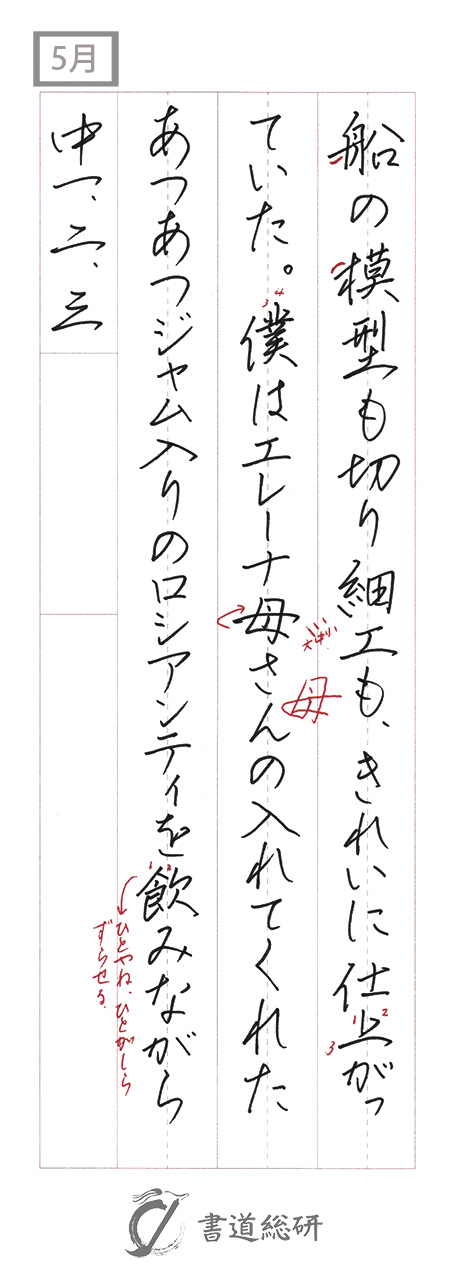 5月
船の模型も切り細工も、きれいに仕上がっ
ていた。僕はエレーナ母さんの入れてくれた
あつあつジャム入りのロシアンティを飲みながら
中一、二、三
3 4
母
1 2
3
1 2
ひとやね、ひとがしら
ずらせる。
書道総研